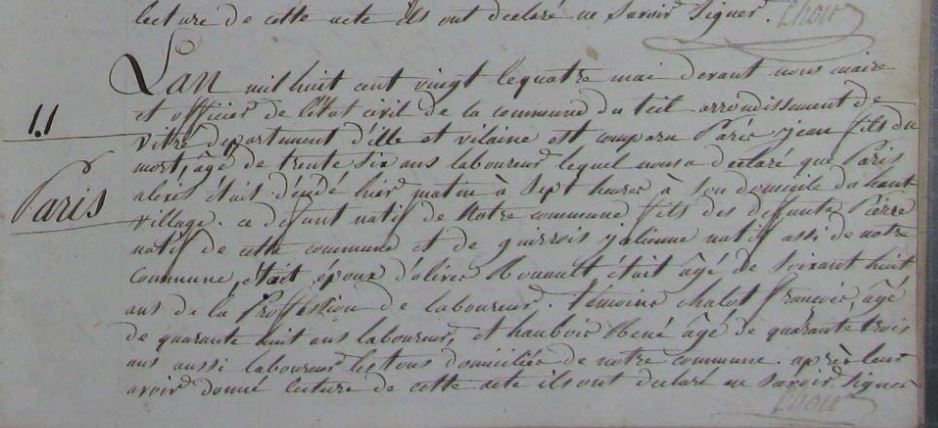 lecture de cette acte ils ont declaré ne Savoir Signer.
Lan mil huit cent vingt le quatre mai devant nous maire
11
et officier de l'état civil de la commune du teil arrondissement de
vitré departement d'ille et vilaine est comparu Paris jean fils du
mort, âgé de trente Six ans laboureur lequel nous a declaré que Paris
Paris
alexis était décedé hier matin à Sept heures à Son domicile du haut
village. ce defunt natif de Notre commune fils des defunts Pierre
natif de cette commune et de julienne natif assi de notre
commune, était époux d'olive était âgé de Soixant huit
ans de la Proffession de laboureur. témoins chalot françois, âgé
de quarante huit ans laboureur, et René âgé de quarante trois
ans aussi laboureur les tous domiciliés de notre commune. après leur
avoir donné lecture de cette acte ils ont declaré ne Savoir Signer